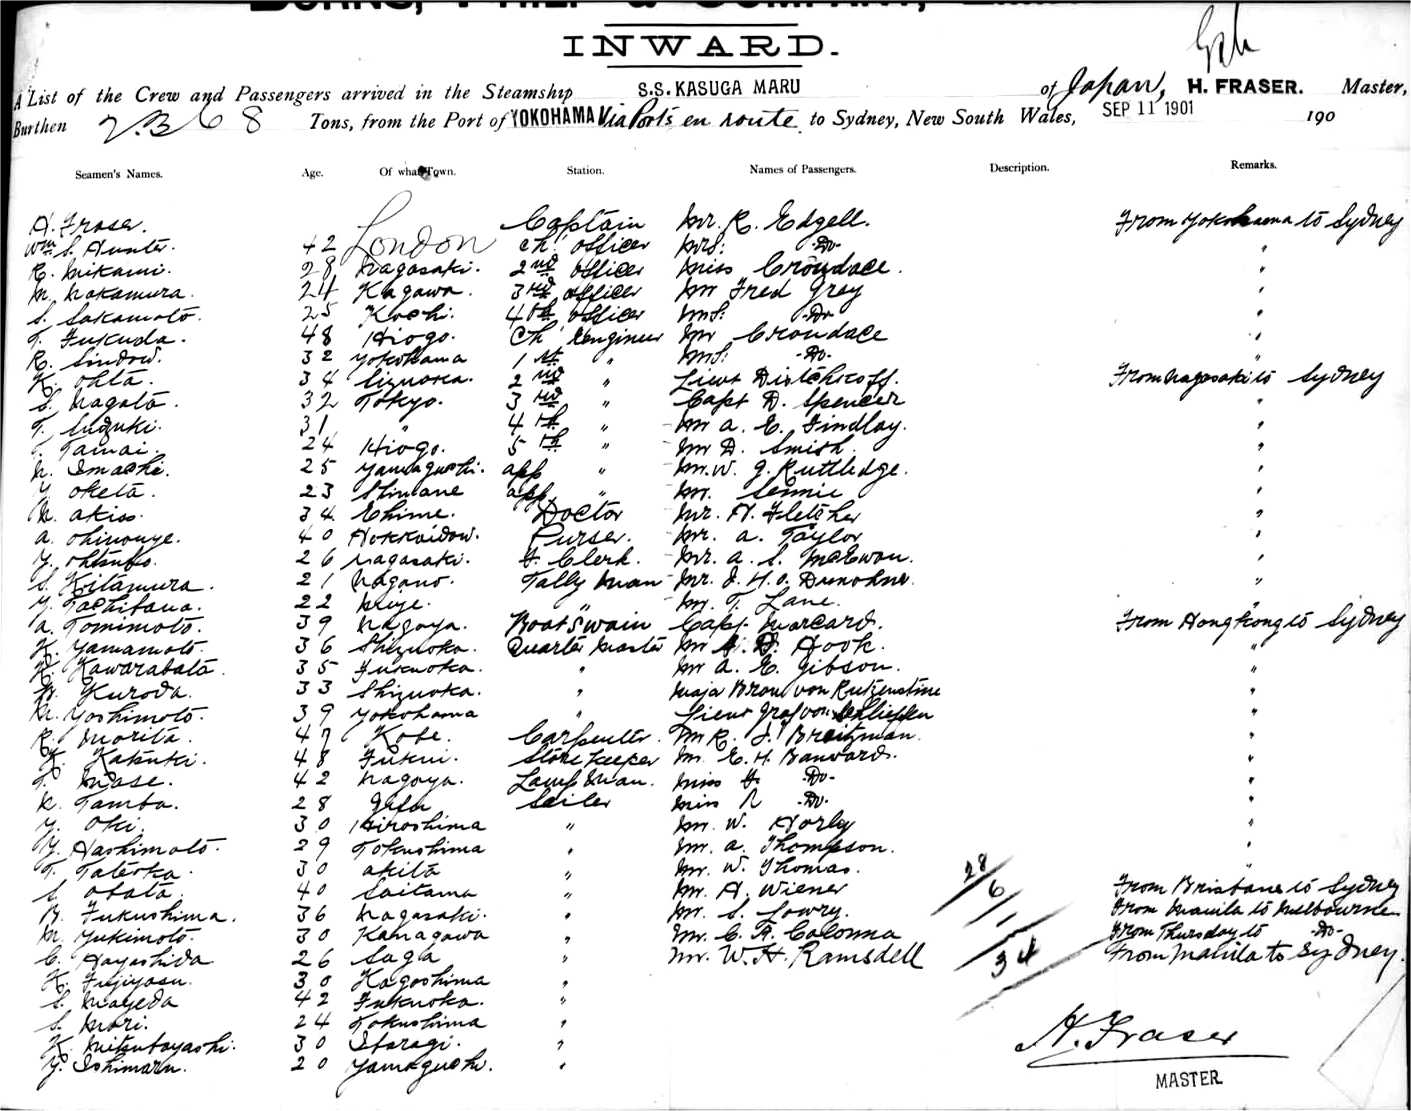 BURNS, PHILP & COMPANY,
INWARD.
A List of the Crew and Passengers arrived in the Steamship S.S. KASUGA MARU of Japan, H. FRASER. Master,
Burthen 2368 Tons, from the Port of YOKOHAMA Via Ports en route to Sydney, New South Wales, SEP 11 1901 190
Seamen's Names. Age. Of what Town. Station. Names of Passengers. Description. Remarks.
H. Fraser. Captain Mr. R. Edgell. From Yokohama to Sydney
Wm. S. Hunter. 42 London Ch. Officer Mrs. Do. "
R. Mikami. 28 Nagasaki. 2nd Officer Miss Croudace. "
M. Nakamura. 24 Kagawa. 3rd Officer Mr Fred Gray "
S. Sakamoto. 25 Kochi. 4th Officer Mrs. Do "
T. Fukuda. 48 Hiogo. Ch. Engineer Mr Croudace "
R. Sindow. 32 Yokohama 1st " Mrs. Do. "
K. Ohta. 34 2nd " Lieut From Nagasaki to Sydney
S. Nagata. 32 Tokyo. 3rd " Capt D. Spencer "
T. Suzuki. 31 " 4th " Mr A. E. Findlay. "
T. Tamai. 24 Hiogo. 5th " Mr D. Smith. "
25 Yamaguchi. app " Mr. W. J. Ruttledge. "
Y. Oketa. 23 Shimane app. " Mr. "
34 Ehime. Doctor Mr. H. Fletcher "
A. Ohinouye. 40 Hokkaidow. Purser. Mr. A. Taylor "
Y. Ohtsubo. 26 Nagasaki. F. Clerk. Mr. A. S. McEwan. "
S. Kitamura. 21 Nagano. Tally Man Mr. J. H. O. "
Y. Tachibana. 22 Miye. " Mr. T. Lane. "
A. Tomimoto. 39 Nagoya. Boatswain Capt. Marcard. From Hongkong to Sydney
K. Yamamoto. 36 Shizuoka. Quarter Master Mr Hook. "
K. Kawarabata. 35 Fukuoka. Mr A. E. Gibson. "
Kuroda. 33 Shizuoka. " Maja von "
M. Yoshimoto. 39 Yokohama " Lieut Graf von Schlieffen "
R. Morita. 47 Kobe. Carpenter. Mr R. J. "
K. Katsuki. 48 Fukui. Store Keeper Mr. E. H. Banward. "
T. Mase. 42 Nagoya. Lamp Man. Miss Do. "
K. Tamba. 28 Gifu Sailer Miss Do. "
Y. Oki. 30 Hiroshima " Mr. W. Horby "
Y. Hashimoto. 29 Tokushima " Mr. A. Thompson. "
T. Tateoka. 30 Akita " Mr. W. Thomas. "
S. Obata. 40 Saitama " Mr. H. Wiener 28 From Brisbane to Sydney
Fukushima. 36 Nagasaki. " Mr. S. Lowry. 6 From Manila to Melbourne
M. Yukimoto. 30 Kanagawa " Mr. C. A. Calonna 1 From Thursday to Do.
C. Hayashida 26 Saga " Mr. W. H. Ramsdell 34 From Manila to Sydney.
K. Fujiyasu. 30 Kagoshima "
S. Mayeda 42 Fukuoka. "
S. Mori. 24 Tokushima "
K. Mitsubayashi. 30 Ibaragi. "
Y. Ishimaru. 20 Yamaguchi. "
H. Fraser
MASTER